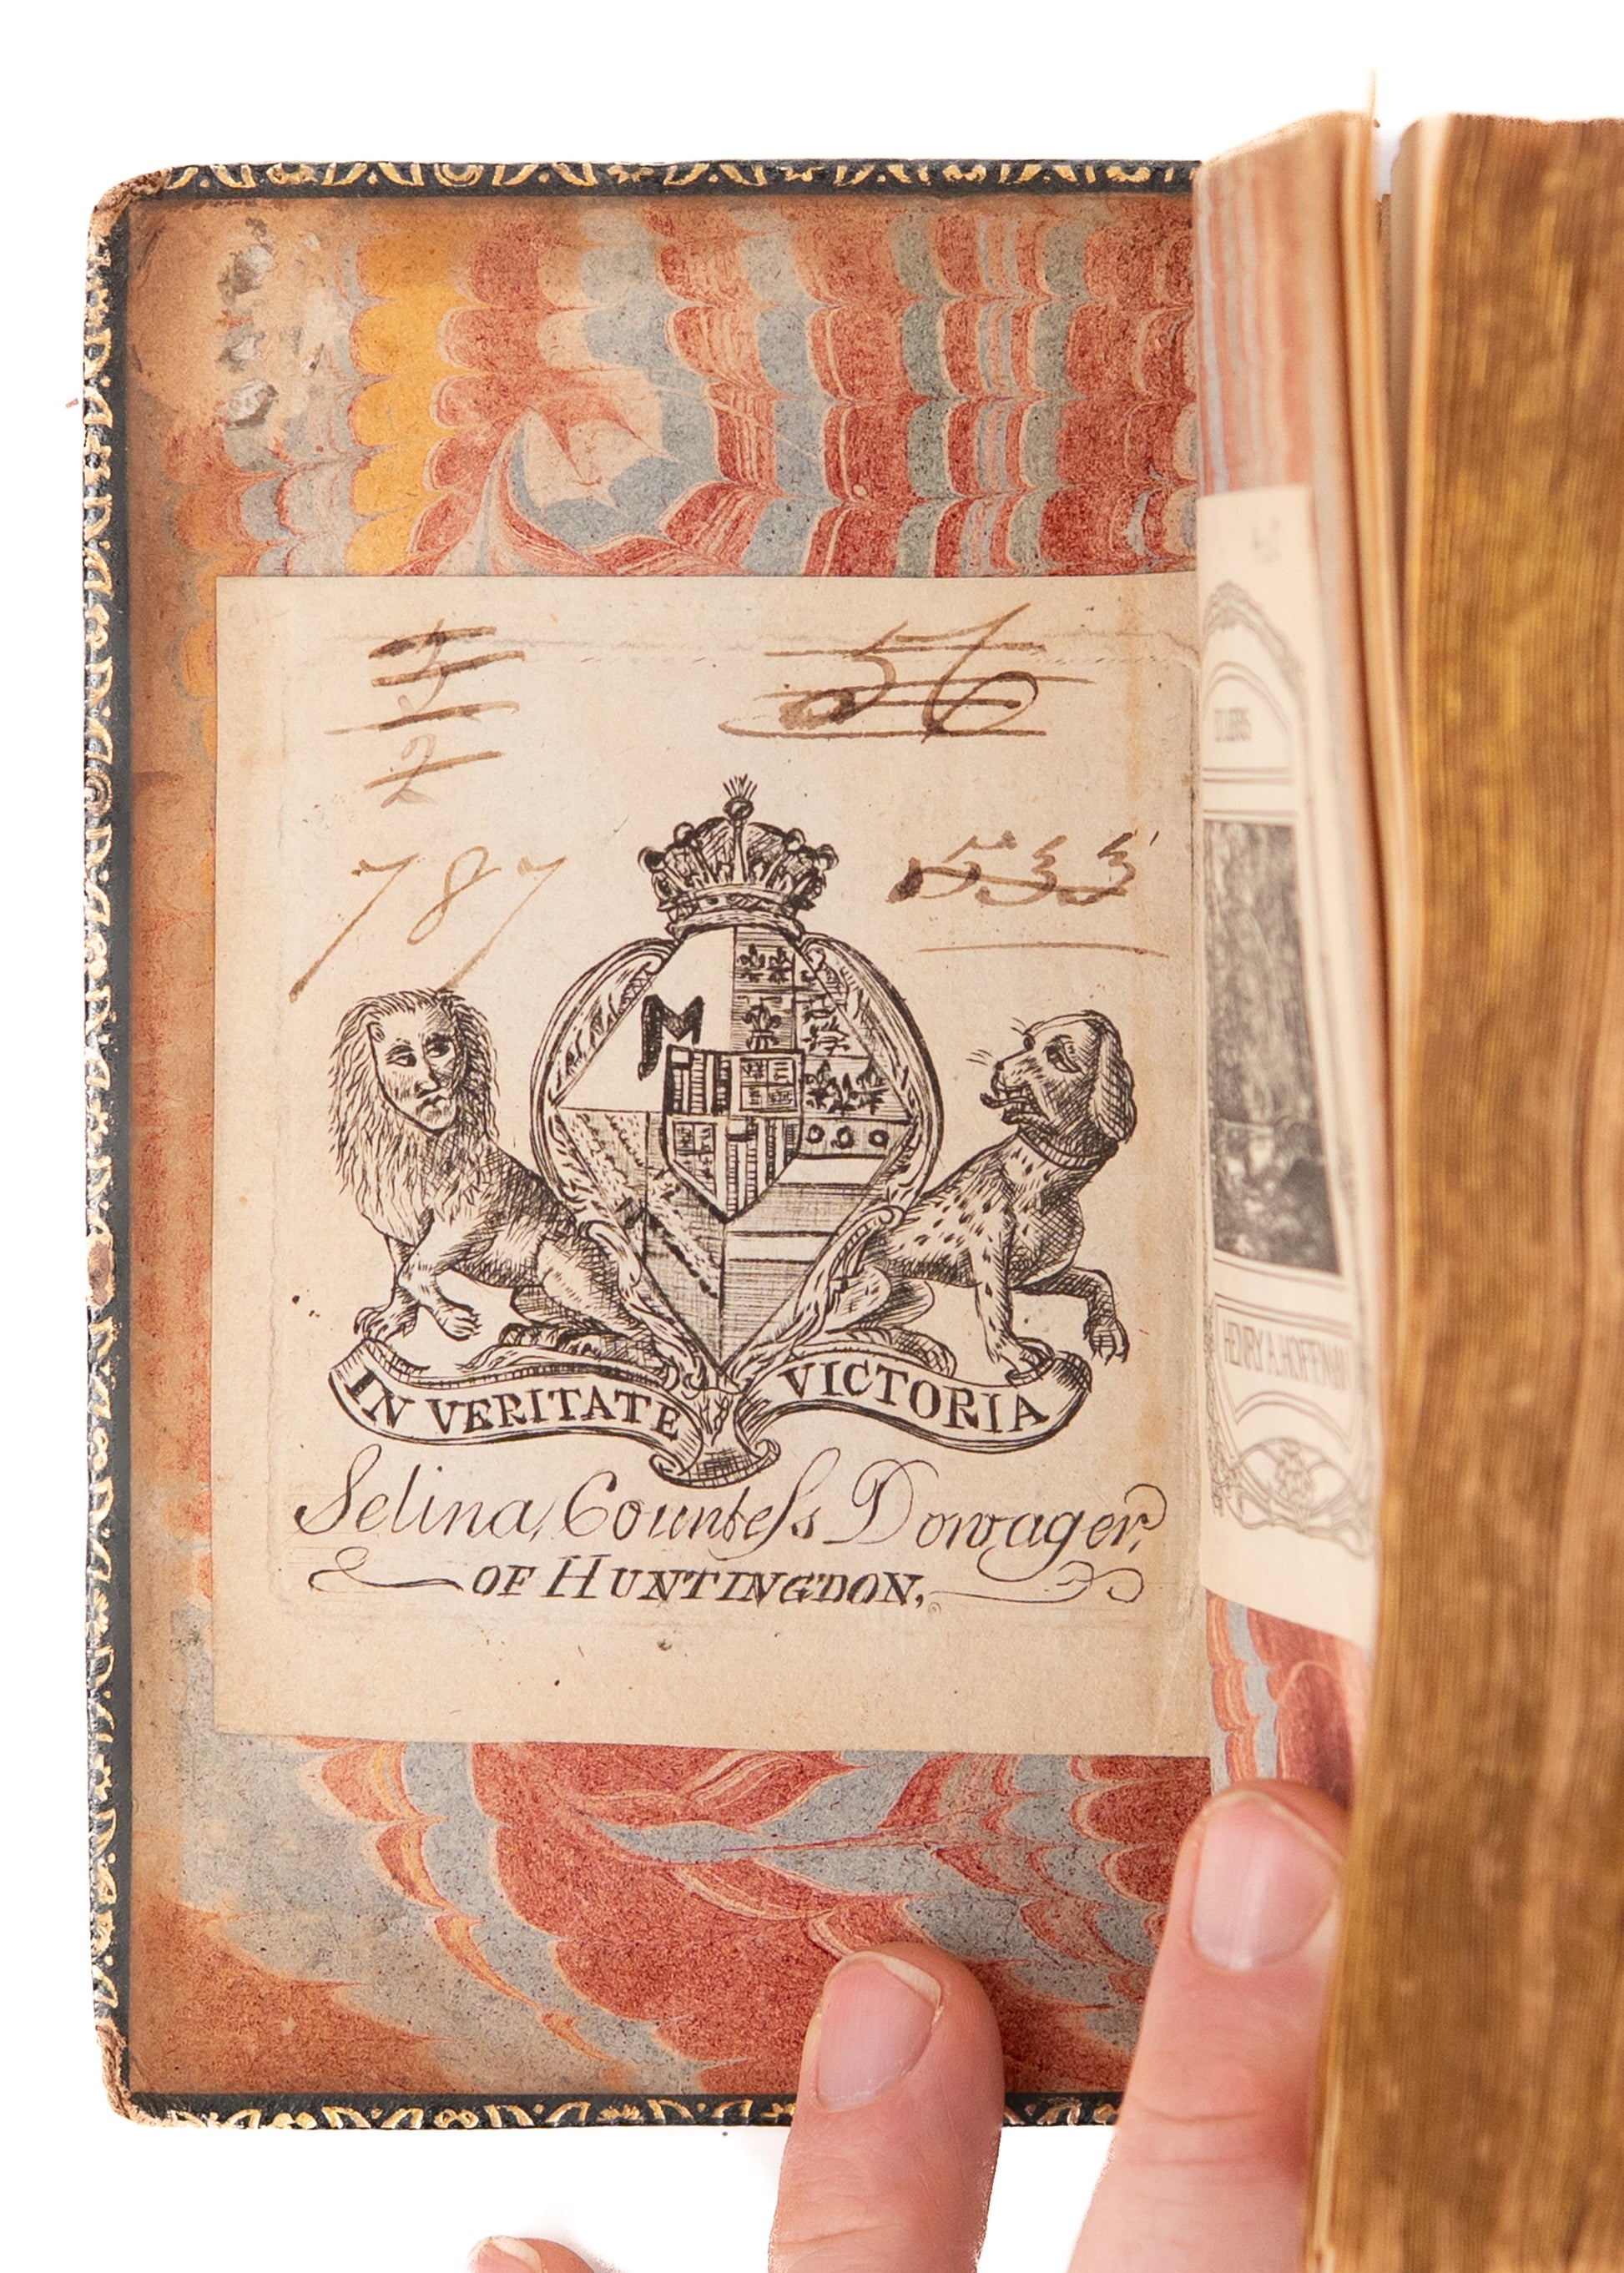 5
56
2
787
533
IN VERITATE VICTORIA
Selina, Counteſs Dowager,
OF HUNTINGDON,
HENRY A. HOFFMAN